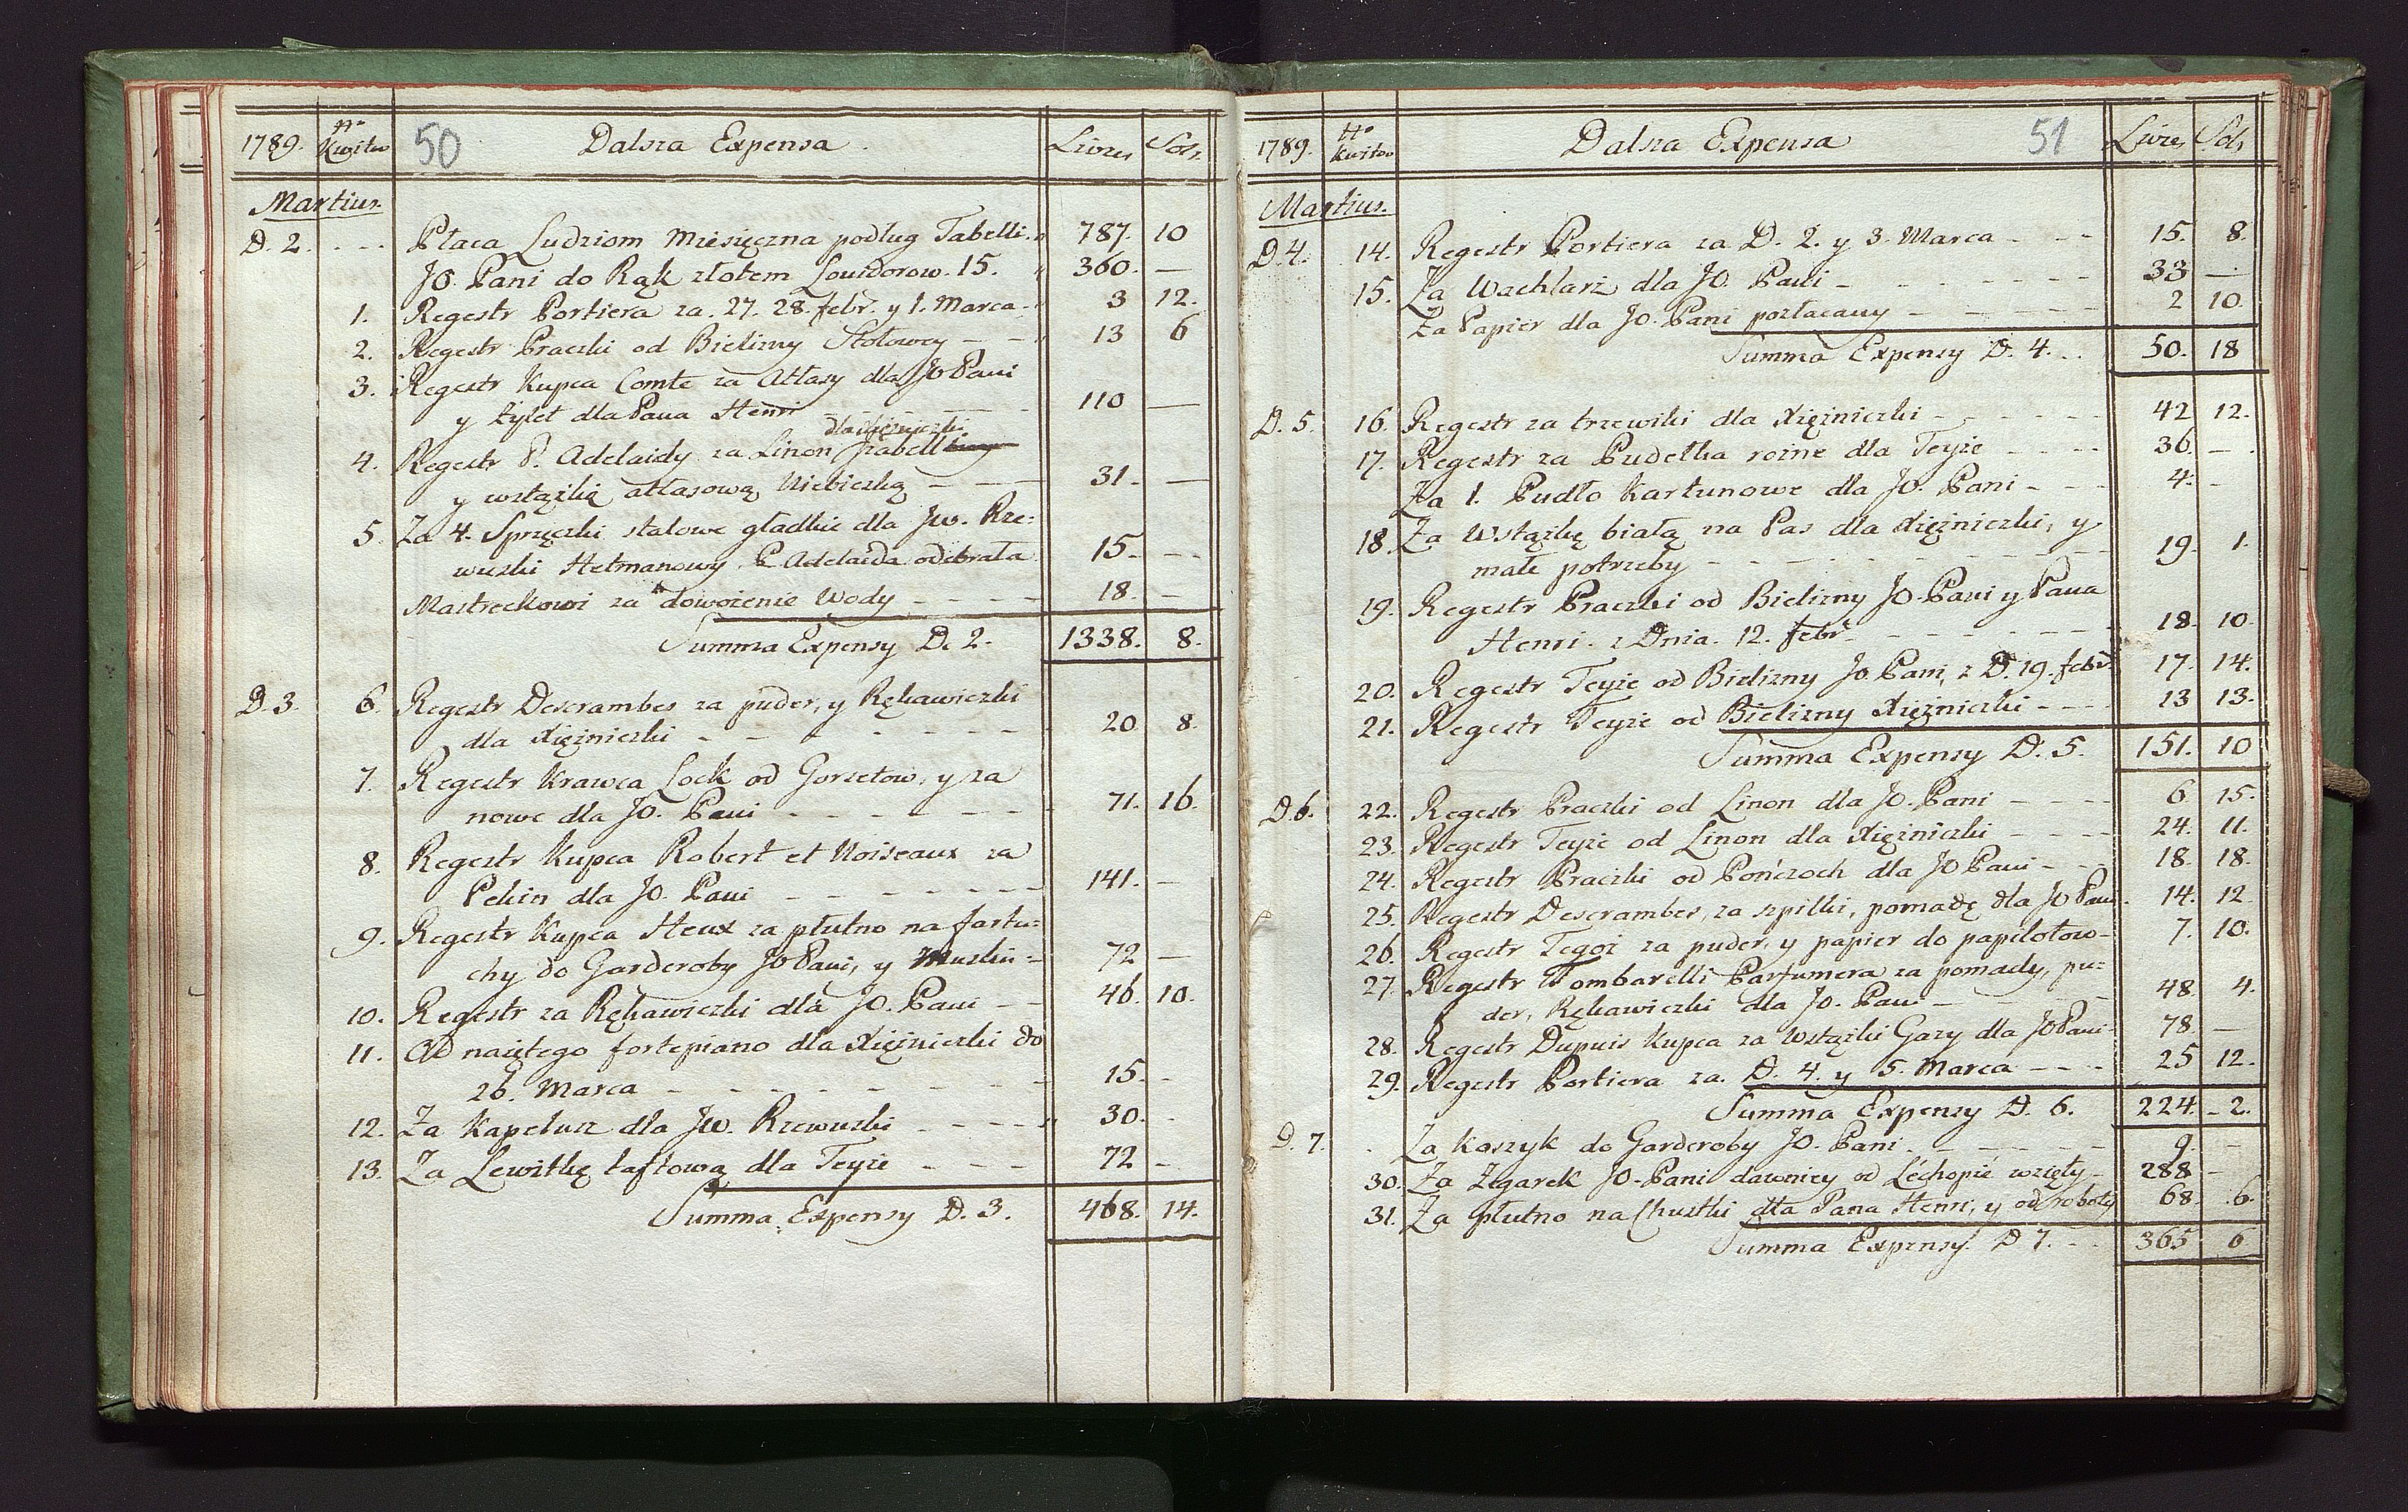 1789. No Kwitow 50 Dalsza Expensa. Livres Sols.
Martius.
D. 2. Płaca Ludziom Miesięczna podług Tabelli. 787. 10
JO. Pani do Rąk złotem Louidorow. 15. 360. —
1. Regestr Portiera za. 27. 28. febr. y 1. Marca. 3 12.
2. Regestr Praczki od Bielizny Stołowey 13 6
3. Regestr Kupca Comte za Atłasy dla JO Pani
y żylet dla Pana Henri 110 —
dla Xiężniczki
4. Regestr P. Adelaidy za Linon
y wstążkę atłasową Niebieską 31. —
5. Za 4. Sprzęczki stalowe gładkie dla Jw. Rze=
wuski Hetmanowy P. Adelaida odebrała 15. —
Mastreckowi za dowożenie Wody 18. —
Summa Expensy D. 2. 1338. 8.
D. 3. 6. Regestr Descrambes za puder, y Rękawiczki
dla Xiężniczki 20. 8.
7. Regestr Krawca Lock od Gorsetow, y za
nowe dla JO. Pani 71. 16.
8. Regestr Kupca Robert et Noiseaux za
Pekin dla JO. Pani 141. —
9. Regestr Kupca Heux za płutno na fartu=
chy do Garderoby JO Pani, y Muslin 72 —
10. Regestr za Rękawiczki dla JO. Pani 46. 10.
11. Od naiętego fortepiano dla Xiężniczki do
26. Marca 15. -
12. Za Kapelusz dla Jw. Rzewuski 30. -
13. Za Lewitkę taftową dla Teyże 72 -
Summa Expensy D. 3. 468. 14.
1789. No Kwitow Dalsza Expensa 51 Livres Sols
Martius.
D. 4. 14. Regestr Portiera za D. 2. y 3. Marca 15. 8.
15. Za Wachlarz dla JO. Pani 33 —
Za Papier dla JO. Pani pozłacany 2 10.
Summa Expensy D. 4. 50. 18
D. 5. 16. Regestr za trzewiki dla Xiężniczki 42 12.
17. Regestr za Pudełka rożne dla Teyże 36. -
Za 1. Pudło Kartunowe dla JO. Pani 4. -
18. Za Wstążkę białą na Pas dla Xiężniczki, y
małe potrzeby 19. 1.
19. Regestr Praczki od Bielizny JO. Pani y Pana
Henri. z Dnia. 12. febr. 18. 10.
20. Regestr Teyże od Bielizny JO. Pani, z D. 19. febr. 17. 14.
21. Regestr Teyże od Bielizny Xiężniczki 13 13.
Summa Expensy D. 5. 151. 10
D. 6. 22. Regestr Praczki od Linon dla JO. Pani 6 15.
23. Regestr Teyże od Linon dla Xiężniczki 24. 11.
24. Regestr Praczki od Pończoch dla JO Pani 18. 18.
25. Regestr Descrambes, za szpilki, pomadę dla JO Pani 14. 12
26. Regestr Tegoż za puder, y papier do papilotow 7. 10.
27. Regestr Tombarelli Parfumera za pomady, pu=
der, Rękawiczki dla JO. Pani 48. 4.
28. Regestr Dupuis Kupca za Wstążki Gazy dla JO Pani 78. —
29. Regestr Portiera za. D. 4. y 5. Marca 25 12.
Summa Expensy D. 6. 224. 2.
D. 7. Za Koszyk do Garderoby JO. Pani 9. -
30. Za Zegarek JO. Pani dawniey od Léchopié wzięty 288 -
31. Za płutno na Chustki dla Pana Henri, y od roboty 68. 6.
Summa Expensy D 7. 365 6